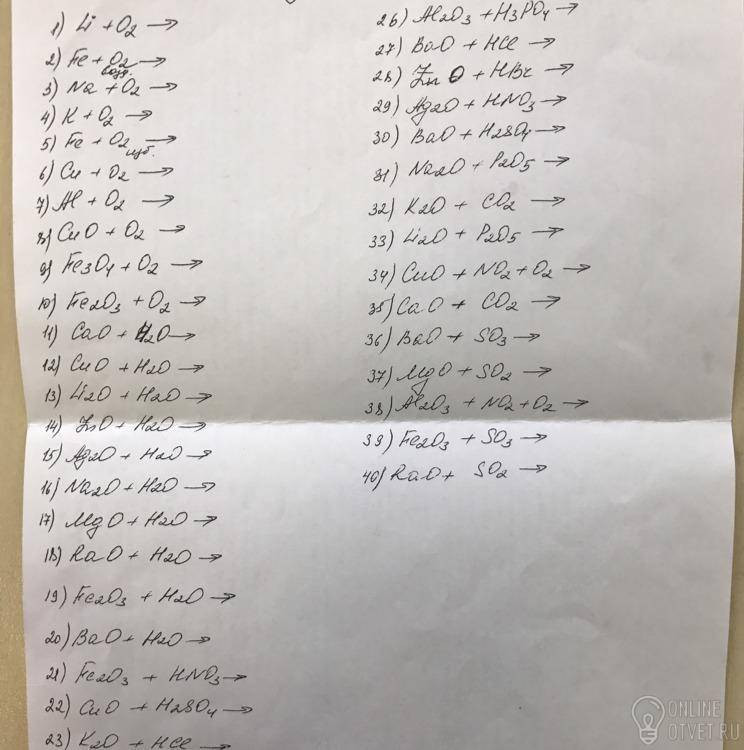 1) Li + O2 →
2) Fe + O2 →
возд.
3) Na + O2 →
4) K + O2 →
5) Fe + O2 →
изб.
6) Cu + O2 →
7) Al + O2 →
8) CuO + O2 →
9) Fe3O4 + O2 →
10) Fe2O3 + O2 →
11) CaO + H2O →
12) CuO + H2O →
13) Li2O + H2O →
14) ZnO + H2O →
15) Ag2O + H2O →
16) Na2O + H2O →
17) MgO + H2O →
18) RaO + H2O →
19) Fe2O3 + H2O →
20) BaO + H2O →
21) Fe2O3 + HNO3 →
22) CuO + H2SO4 →
23) K2O + HCl →
26) Al2O3 + H3PO4 →
27) BaO + HCl →
28) ZnO + HBr →
29) Ag2O + HNO3 →
30) BaO + H2SO4 →
31) Na2O + P2O5 →
32) K2O + CO2 →
33) Li2O + P2O5 →
34) CuO + NO2 + O2 →
35) CaO + CO2 →
36) BaO + SO3 →
37) MgO + SO2 →
38) Al2O3 + NO2 + O2 →
39) Fe2O3 + SO3 →
40) RaO + SO2 →
ONLINE
OTVET.RU